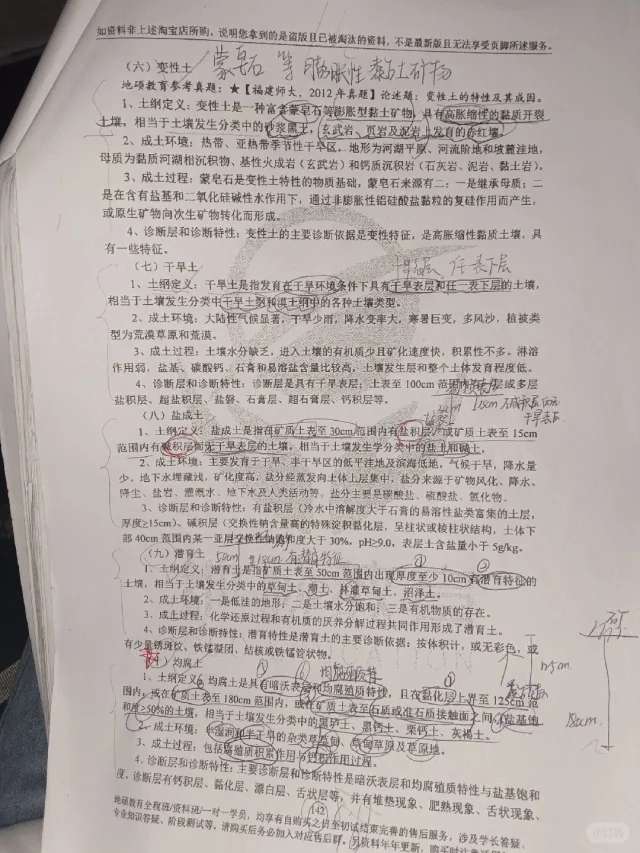 如资料非上述淘宝店所购，说明您拿到的是盗版且已被淘汰的资料，不是最新版且无法享受页脚所述服务。
（六）变性土 蒙皂石 等 膨胀性 黏土矿物
地硕教育参考真题：★【福建师大，2012年真题】论述题：变性土的特性及其成因。
1、土纲定义：变性土是一种富含蒙皂石等膨胀型黏土矿物，具有高胀缩性的黏质开裂
土壤，相当于土壤发生分类中的砂浆黑土，玄武岩、页岩及泥岩上发育的赤红壤。
2、成土环境：热带、亚热带季节性干旱区，地形为河湖平原、河流阶地和坡麓洼地，
母质为黏质河湖相沉积物、基性火成岩（玄武岩）和钙质沉积岩（石灰岩、泥岩、黏土岩）。
3、成土过程：蒙皂石是变性土特性的物质基础，蒙皂石来源有二：一是继承母质；二
是在含有盐基和二氧化硅碱性水作用下，通过非膨胀性铝硅酸盐黏粒的复硅作用而产生，
或原生矿物向次生矿物转化而形成。
4、诊断层和诊断特性：变性土的主要诊断依据是变性特征，是高胀缩性黏质土壤，具
有一些特征。
（七）干旱土 干旱层 任一表下层
1、土纲定义：干旱土是指发育在干旱环境条件下具有干旱表层和任一表下层的土壤，
相当于土壤发生分类中干旱土纲和漠土纲中的各种土壤类型。
2、成土环境：大陆性气候显著，干旱少雨，降水变率大，寒暑巨变，多风沙，植被类
型为荒漠草原和荒漠。
3、成土过程：土壤水分缺乏，进入土壤的有机质少且矿化速度快，积累性不多。淋溶
作用弱，盐基、碳酸钙、石膏和易溶盐含量比较高，土壤发生层和整个土体发育程度低。
4、诊断层和诊断特性：诊断层是具有干旱表层；土表至100cm范围内有一层或多层
盐积层、超盐积层、盐磐、石膏层、超石膏层、钙积层等。
（八）盐成土
1、土纲定义：盐成土是指在矿质土表至30cm范围内有盐积层，或矿质土表至15cm
范围内有碱积层而无干旱表层的土壤，相当于土壤发生学分类中的盐土和碱土。
2、成土环境：主要发育于干旱、半干旱区的低平洼地及滨海低地，气候干旱，降水量
少，地下水埋藏浅，矿化度高，盐分经蒸发向土体上层集中，盐分来源于矿物风化、降水、
降尘、盐岩、灌溉水、地下水及人类活动等，盐分主要是碳酸盐、硫酸盐、氯化物。
3、诊断层和诊断特性：有盐积层（冷水中溶解度大于石膏的易溶性盐类富集的土层，
厚度≥15cm）、碱积层（交换性钠含量高的特殊淀积黏化层，呈柱状或棱柱状结构，土体下
部40cm范围内某一亚层交换性钠饱和度大于30%，pH≥9.0，表层土含盐量小于5g/kg。
（九）潜育土 50cm 中10cm 有潜育特征
1、土纲定义：潜育土是指矿质土表至50cm范围内出现厚度至少10cm有潜育特征的
土壤，相当于土壤发生分类中的草甸土、潮土、林灌草甸土、沼泽土。
2、成土环境：一是低洼的地形；二是土壤水分饱和；三是有机物质的存在。
3、成土过程：化学还原过程和有机质的厌养分解过程共同作用形成了潜育土。
4、诊断层和诊断特性：潜育特性是潜育土的主要诊断依据：按体积计，或无彩色，或
有少量锈斑纹、铁锰凝团、结核或铁锰管状物。
（十）均腐土 均腐殖质特
1、土纲定义：均腐土是具有暗沃表层和均腐殖质特性，且在黏化层上界至125cm范
围内，或在矿质土表至180cm范围内，或在矿质土表至石质或准石质接触面之间，盐基饱
和度≥50%的土壤，相当于土壤发生分类中的黑垆土、黑钙土、栗钙土、灰褐土。
2、成土环境：湿润和半干旱的杂类草草甸、草甸草原及草原地。
3、成土过程：包括腐殖质积累作用与钙积作用过程。
4、诊断层和诊断特性：主要诊断层和诊断特性是暗沃表层和均腐殖质特性与盐基饱和
度，诊断层有钙积层、黏化层、漂白层、舌状层等，并有堆垫现象、肥熟现象、舌状现象、
125cm
180cm
142
地硕教育全程班/资料班/一对一学员，均享有自购买之日至初试结束完善的售后服务，涉及学长答疑、
专业知识答疑、阶段测试等，请购买后务必加入对应售后群。